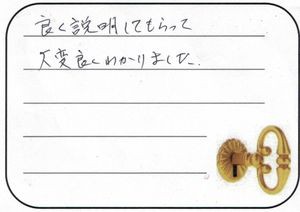 良く説明してもらって
大変良くわかりました。